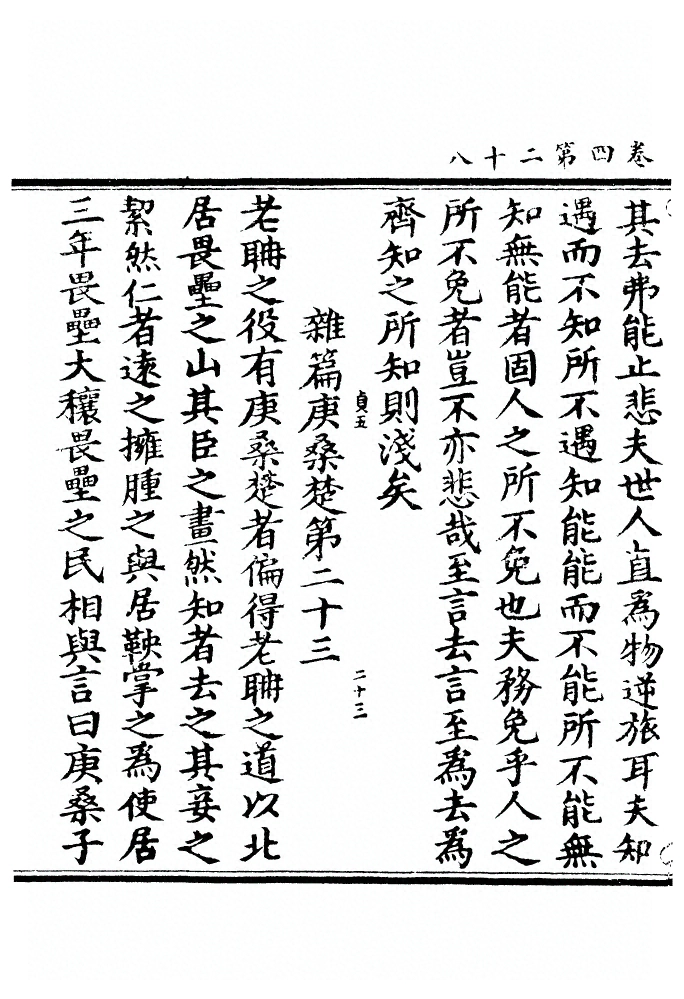 卷四第二十八
其去弗能止悲夫世人直爲物逆旅耳夫知
遇而不知所不遇知能能而不能所不能無
知無能者固人之所不免也夫務免乎人之
所不免者豈不亦悲哉至言去言至爲去爲
齊知之所知則淺矣
貞五
二十三
雜篇庚桑楚第二十三
老聃之役有庚桑楚者偏得老聃之道以北
居畏壘之山其臣之畫然知者去之其妾之
絜然仁者遠之擁腫之與居鞅掌之爲使居
三年畏壘大穰畏壘之民相與言曰庚桑子